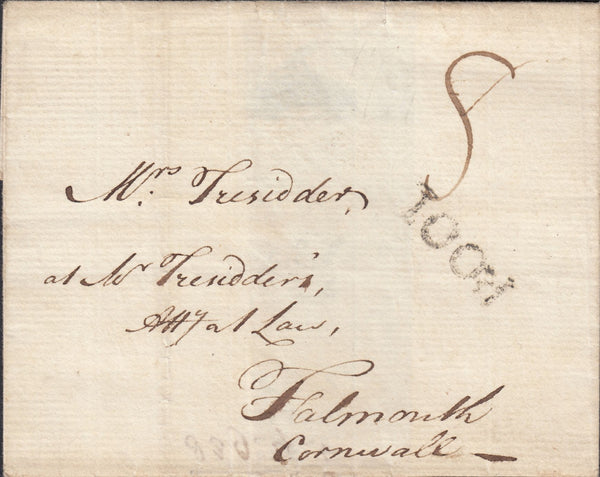 8
Mrs Tresidder,
LOOE
at Mr Tresidder's,
Atty at Law,
Falmouth
Cornwall